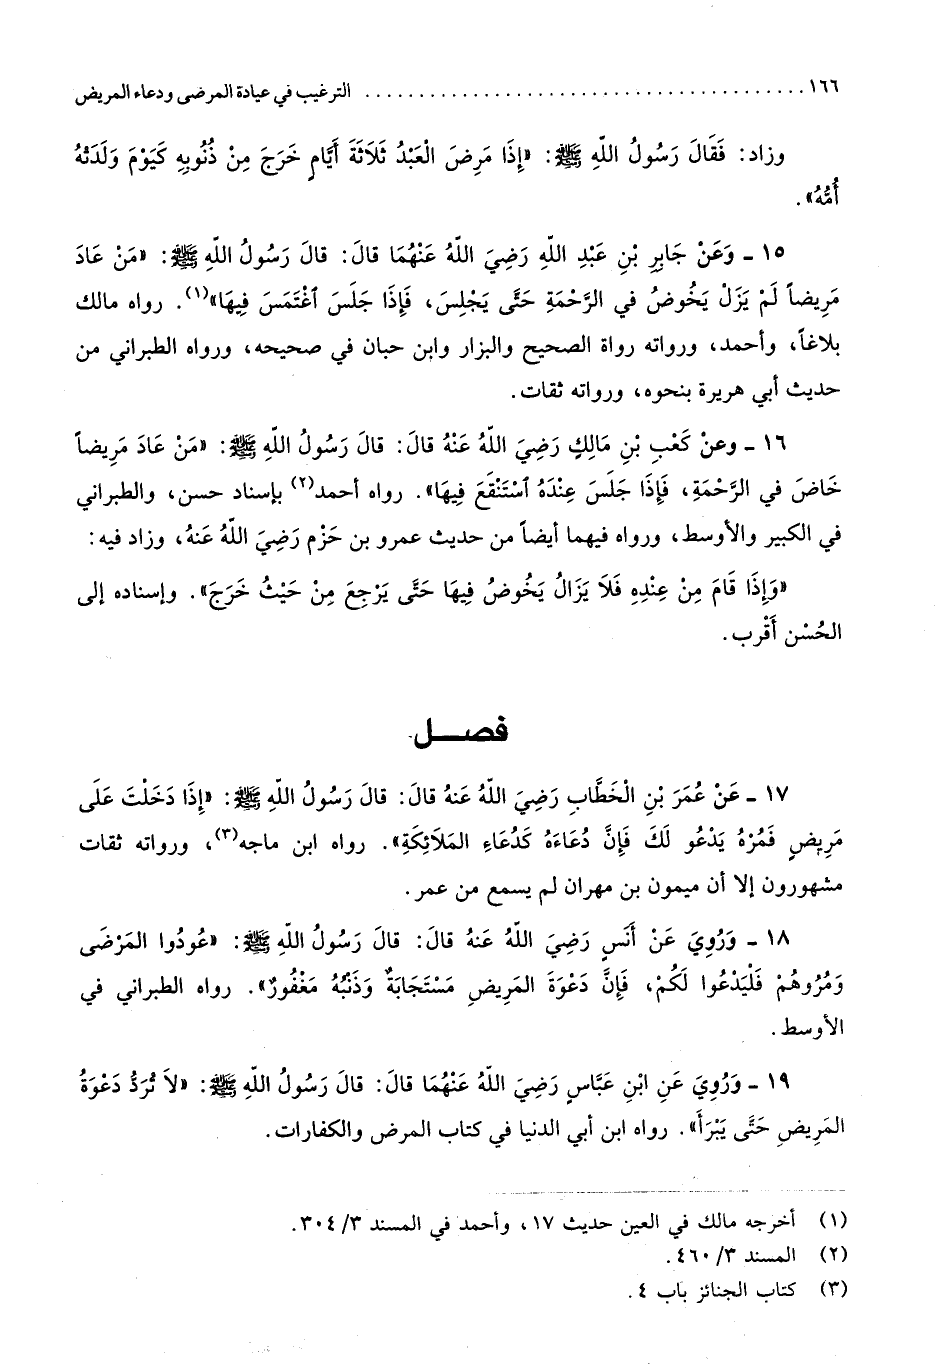 ١٦٦ ........................................ الترغيب في عيادة المرضى ودعاء المريض
وزاد: فَقَالَ رَسُولُ اللّهِ ﷺ: «إِذَا مَرِضَ الْعَبْدُ ثَلَاثَةَ أَيَّامٍ خَرَجَ مِنْ ذُنُوبِهِ كَيَوْمَ وَلَدَتْهُ
أُمُّهُ».
١٥ - وَعَنْ جَابِرِ بْنِ عَبْدِ اللّهِ رَضِيَ اللّهُ عَنْهُمَا قالَ: قالَ رَسُولُ اللّهِ ﷺ: «مَنْ عَادَ
مَرِيضاً لَمْ يَزَلْ يَخُوضُ في الرَّحْمَةِ حَتَّى يَجْلِسَ، فَإِذَا جَلَسَ ٱغْتَمَسَ فِيهَا»(١). رواه مالك
بلاغاً، وأحمد، ورواته رواة الصحيح والبزار وابن حبان في صحيحه، ورواه الطبراني من
حديث أبي هريرة بنحوه، ورواته ثقات.
١٦ - وعنْ كَعْبِ بْنِ مَالِكٍ رَضِيَ اللّهُ عَنْهُ قالَ: قالَ رَسُولُ اللّهِ ﷺ: «مَنْ عَادَ مَرِيضاً
خَاضَ في الرَّحْمَةِ، فَإِذَا جَلَسَ عِنْدَهُ ٱسْتَنْقَعَ فِيهَا». رواه أحمد(٢) بإسناد حسن، والطبراني
في الكبير والأوسط، ورواه فيهما أيضاً من حديث عمرو بن حزم رَضِيَ اللّهُ عَنهُ، وزاد فيه:
«وَإِذَا قَامَ مِنْ عِنْدِهِ فَلَا يَزَالُ يَخُوضُ فِيهَا حَتَّى يَرْجِعَ مِنْ حَيْثُ خَرَجَ». وإسناده إلى
الحُسْن أَقْرب.
فصـــل
١٧ - عَنْ عُمَرَ بْنِ الْخَطَّابِ رَضِيَ اللّهُ عَنهُ قالَ: قالَ رَسُولُ اللّهِ ﷺ: «إِذَا دَخَلْتَ عَلَى
مَرِيضٍ فَمُرْهُ يَدْعُو لَكَ فَإِنَّ دُعَاءَهُ كَدُعَاءِ المَلَائِكَةِ». رواه ابن ماجه(٣)، ورواته ثقات
مشهورون إلا أن ميمون بن مهران لم يسمع من عمر.
١٨ - وَرُوِيَ عَنْ أَنَسٍ رَضِيَ اللّهُ عَنهُ قالَ: قالَ رَسُولُ اللّهِ ﷺ: «عُودُوا المَرْضَى
وَمُرُوهُمْ فَلْيَدْعُوا لَكُمْ، فَإِنَّ دَعْوَةَ المَرِيضِ مَسْتَجَابَةٌ وَذَنْبُهُ مَغْفُورٌ». رواه الطبراني في
الأوسط.
١٩ - وَرُوِيَ عَنِ ابْنِ عَبَّاسٍ رَضِيَ اللّهُ عَنْهُمَا قالَ: قالَ رَسُولُ اللّهِ ﷺ: «لاَ تُرَدُّ دَعْوَةُ
المَرِيضِ حَتَّى يَبْرَأَ». رواه ابن أبي الدنيا في كتاب المرض والكفارات.
(١) أخرجه مالك في العين حديث ١٧، وأحمد في المسند ٣/ ٣٠٤.
(٢) المسند ٣/ ٤٦٠.
(٣) كتاب الجنائز باب ٤.